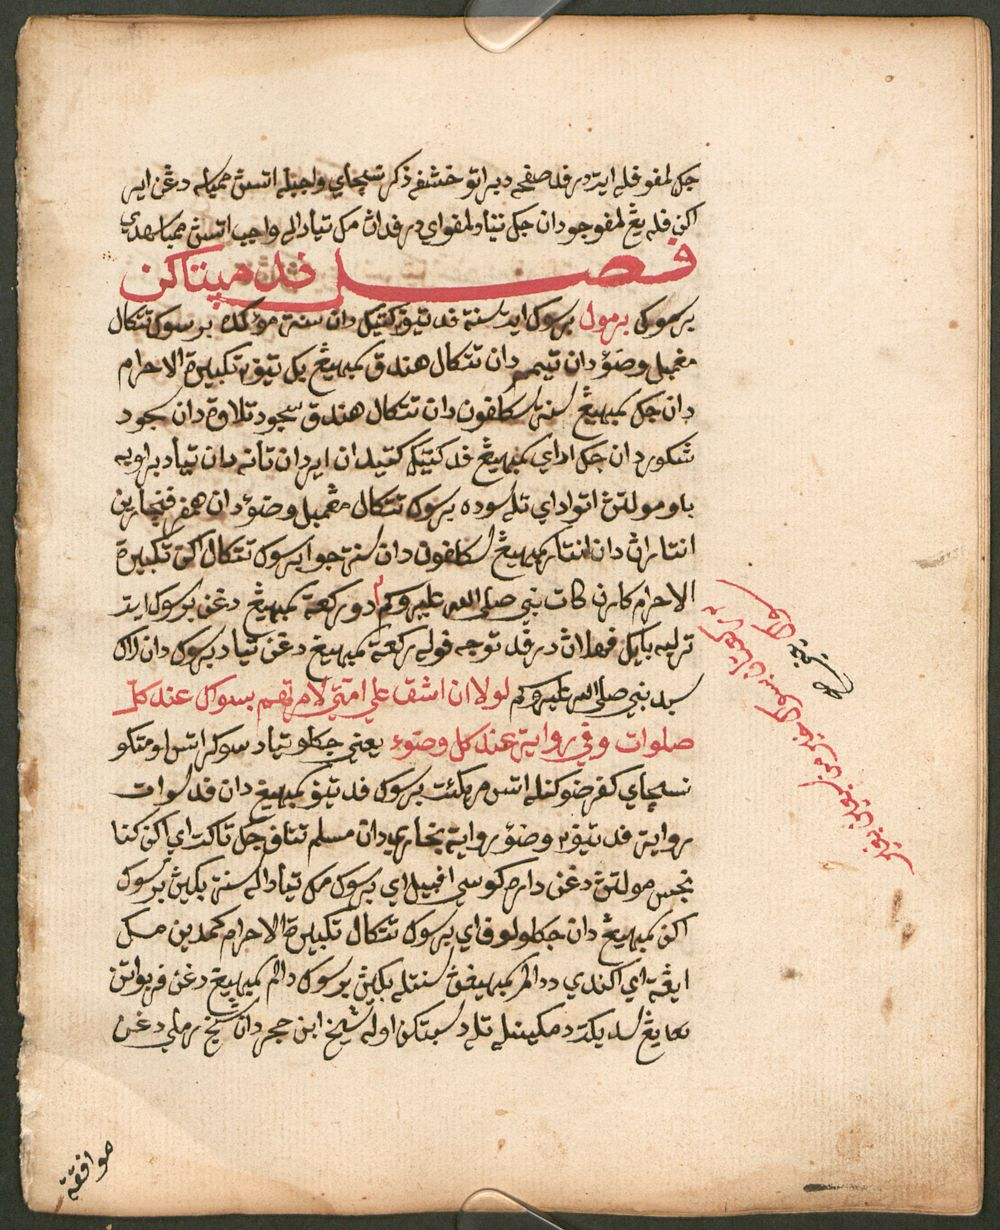 جك لمفو فله ايت درفد صفحه دبراتو خشفه ذكر نسچاي واجبله اتسڽ ممباسه دغن اير
اكن فله يڠ لمفو جو دان جك تياد لمفو اي درفداڽ مك تيادله واجب اتسڽ ممباسهدي
فصل فد مپتاكن
برسوك برمول برسوك ايت سنة فد تيڤ٢ كتيك دان سنة مؤكد برسوك تتكال
مڠمبل وضوء دان تيمم دان تتكال هندق سمبهيڠ بك تيڤ٢ تكبيرة الاحرام
دان جك سمبهيڠ سنة سكلفون دان تتكال هندق سجود تلاوة دان سجود
شكور دان جك اداي سمبهيڠ فد كتيك كتيدان اير دان تانه دان تياد براوبه
باو مولتڽ اتو اداي تله سوده برسوك تتكال مڠمبل وضوء دان همفر فنچارين
انتاراڽ دان انتار سمبهيڠ سكلفون دان سنة جوا برسوك تتكال اكن تكبيرة
الاحرام كارن كات نبي صلى الله عليه وسلم دو ركعة سمبهيڠ دغن برسوك ايت
ترلبه بايك فهلاڽ درفد توجه فوله ركعة سمبهيڠ دغن تياد برسوك دان لاڬي
سبد نبي صلى الله عليه وسلم لولا ان اشق على امتي لامرتهم بسوك عند كل
صلوات وفي رواية عند كل وضوء يعني جكلو تياد سوكر اتس امتكو
نسچاي كفرضوكنله اتس مريكئت برسوك فد تيڤ٢ سمبهيڠ دان فد سوات
رواية فد تيڤ٢ وضوء رواية بخاري دان مسلم تتافي جك تاكت اي اكن كنا
نجس مولتڽ دغن داره ڬوسي افبيل اي برسوك مك تيادله سنة بڬيڽ برسوك
اكن سمبهيڠ دان جكلو لوفاي برسوك تتكال تكبيرة الاحرام كمدين مك
ايڠة اي اكندي ددالم سمبهيڠڽ سنتله بڬيڽ برسوك دالم سمبهيڠ دغن فربواتن
يڠ سديكت دمكينله تله دسبتكن اوله شيخ ابن حجر دان شيخ رملي دغن
موافقة